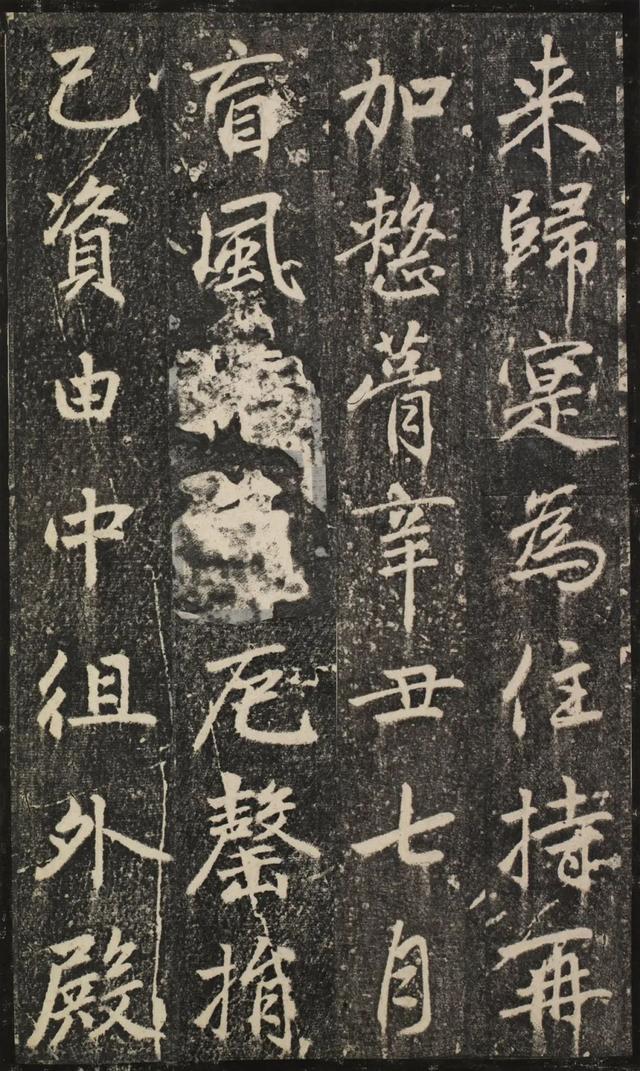 来歸寔為住持再
加整葺辛丑七月
盲風厄罄捐
己資由中徂外殿